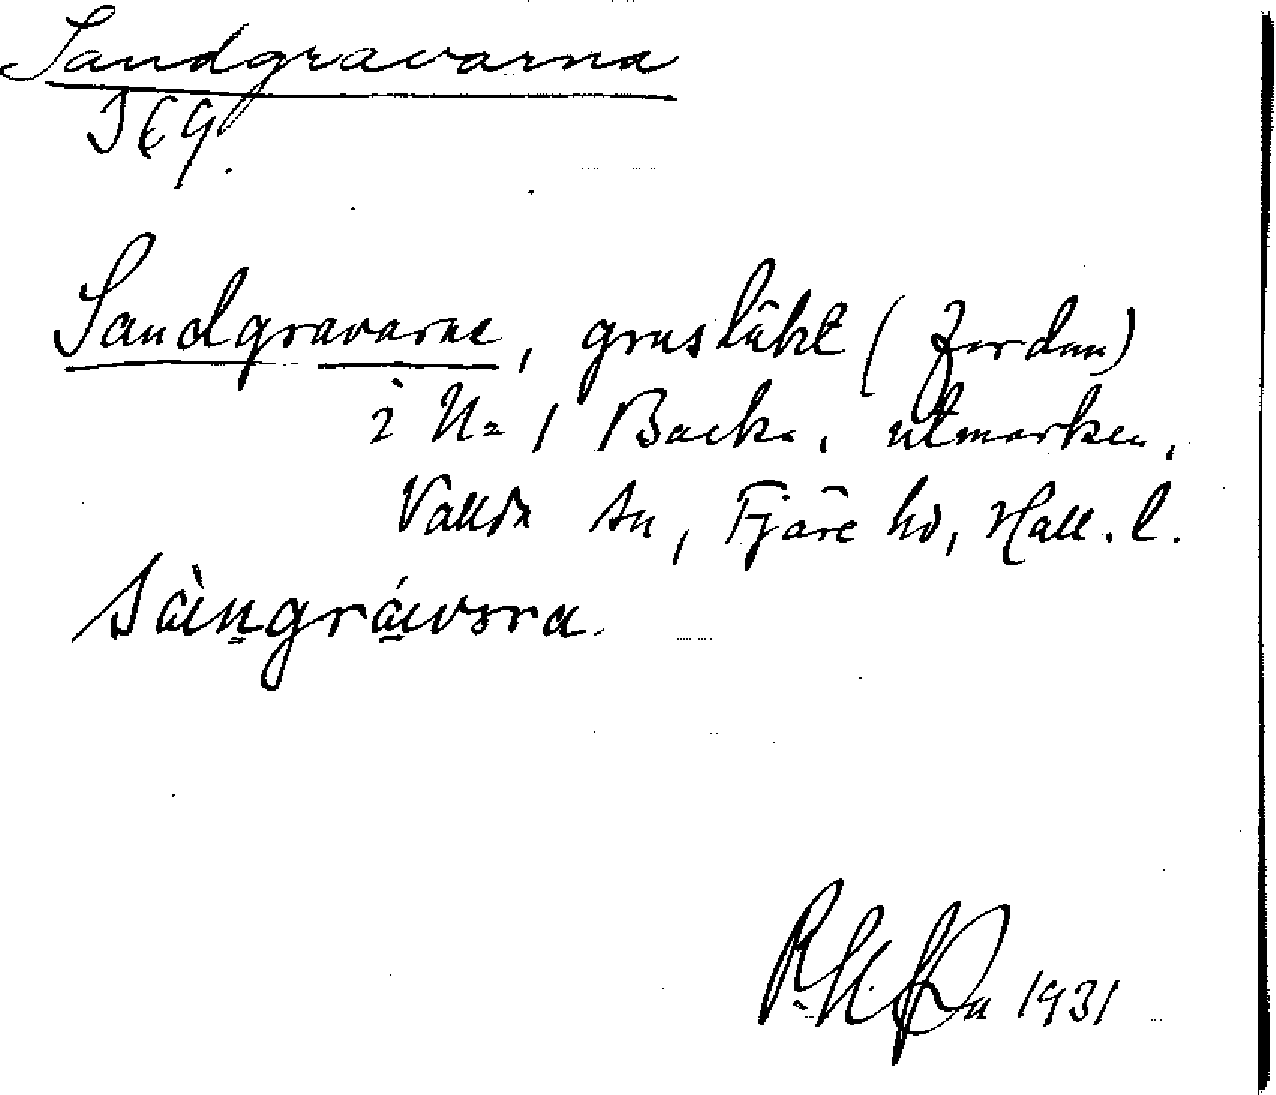 Sandgravarna
I E G.
Sandgravarne, grustäkt (jordan)
i No 1 Backa, utmarken,
Vallda sn, Fjäre hd, Hall. l.
1931